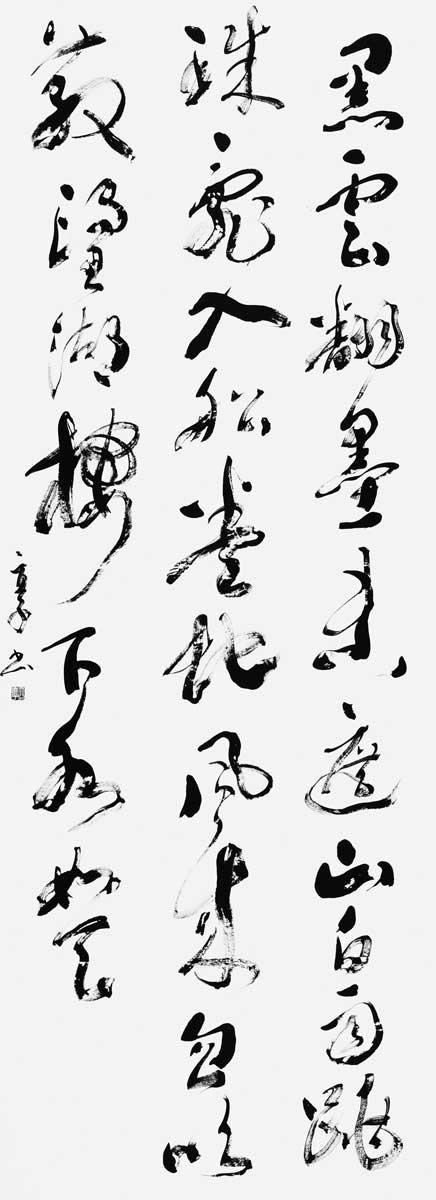 黑雲翻墨未遮山白雨跳
珠亂入船卷地風來忽吹
散望湖樓下水如天
享書